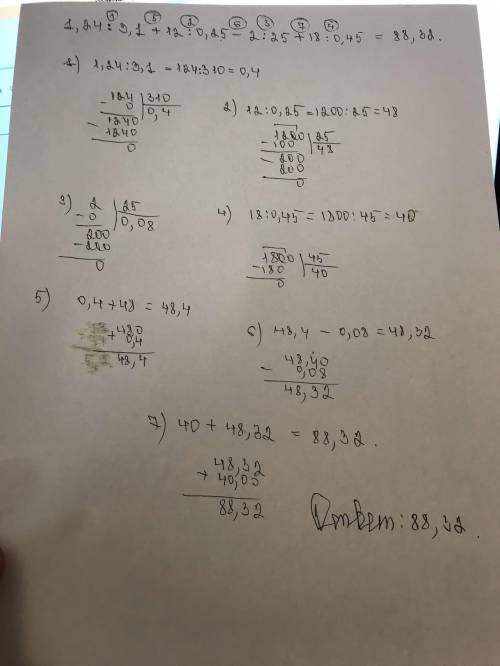 1 5 2 6 3 7 4
1,24 : 3,1 + 12 : 0,25 - 2 : 25 + 18 : 0,45 = 88,32.
1) 1,24 : 3,1 = 124 : 310 = 0,4
124 | 310
- 0 | 0,4
1240
- 1240
0
2) 12 : 0,25 = 1200 : 25 = 48
1200 | 25
- 100 | 48
200
- 200
0
3) 2 | 25
- 0 | 0,08
200
- 200
0
4) 18 : 0,45 = 1800 : 45 = 40
1800 | 45
- 180 | 40
0
5) 0,4 + 48 = 48,4
48,0
+ 0,4
48,4
6) 48,4 - 0,08 = 48,32
48,40
- 0,08
48,32
7) 40 + 48,32 = 88,32.
48,32
+ 40,00
88,32
Ответ: 88,32.